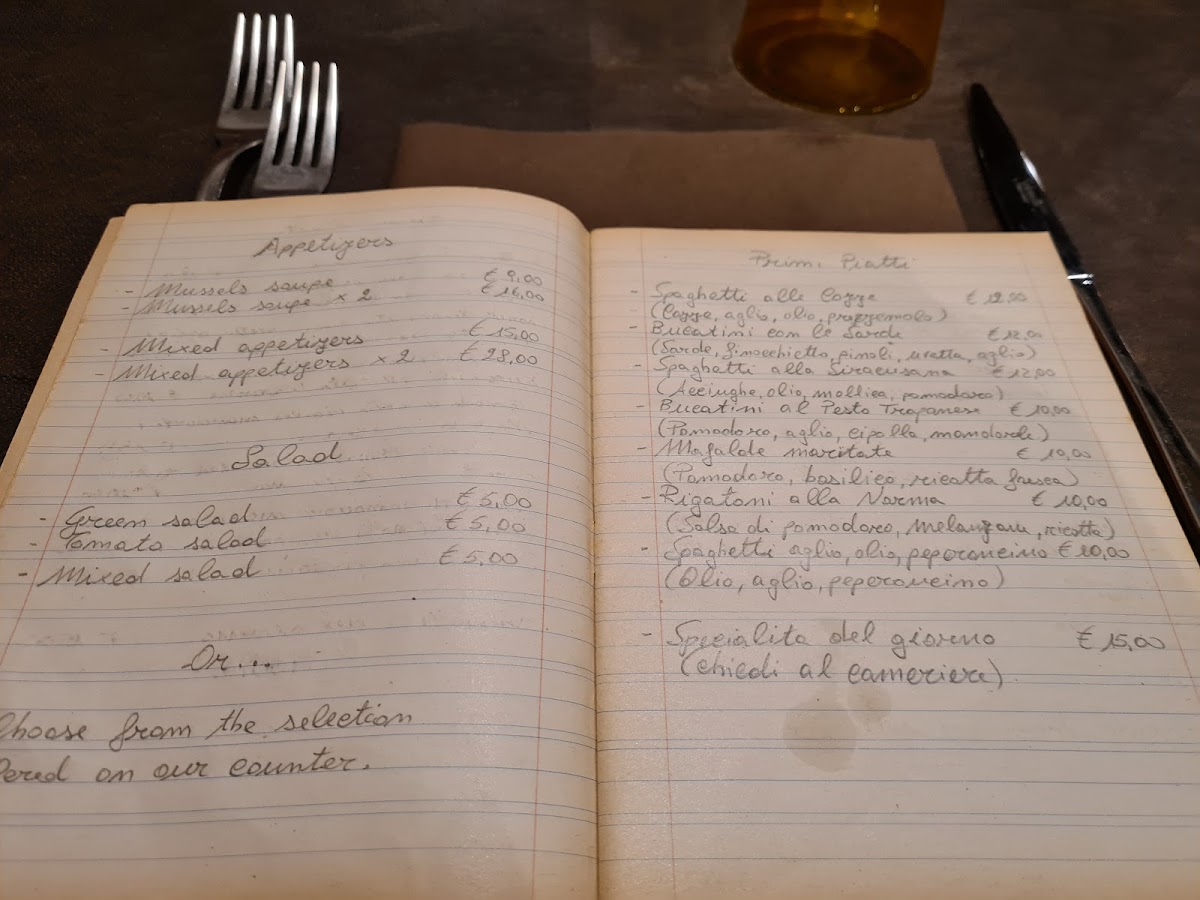 Appetizers
- Mussels soupe € 9,00
- Mussels soupe x 2 € 16,00
- Mixed appetizers € 15,00
- Mixed appetizers x 2 € 28,00
Salad
- Green salad € 5,00
- Tomato salad € 5,00
- Mixed salad € 5,00
Or...
Choose from the selection
on our counter.
Primi Piatti
- Spaghetti alle Cozze € 12,00
(Cozze, aglio, olio, prezzemolo)
- Bucatini con le Sarde € 12,00
(Sarde, finocchietto, pinoli, uvetta, aglio)
- Spaghetti alla Siracusana € 12,00
(Acciughe, olio, mollica, pomodoro)
- Bucatini al Pesto Trapanese € 10,00
(Pomodoro, aglio, cipolla, mandorle)
- Mafalde maritate € 10,00
(Pomodoro, basilico, ricotta fresca)
- Rigatoni alla Norma € 10,00
(Salsa di pomodoro, melanzane, ricotta)
- Spaghetti aglio, olio, peperoncino € 10,00
(Olio, aglio, peperoncino)
- Specialita del giorno € 15,00
(chiedi al cameriere)